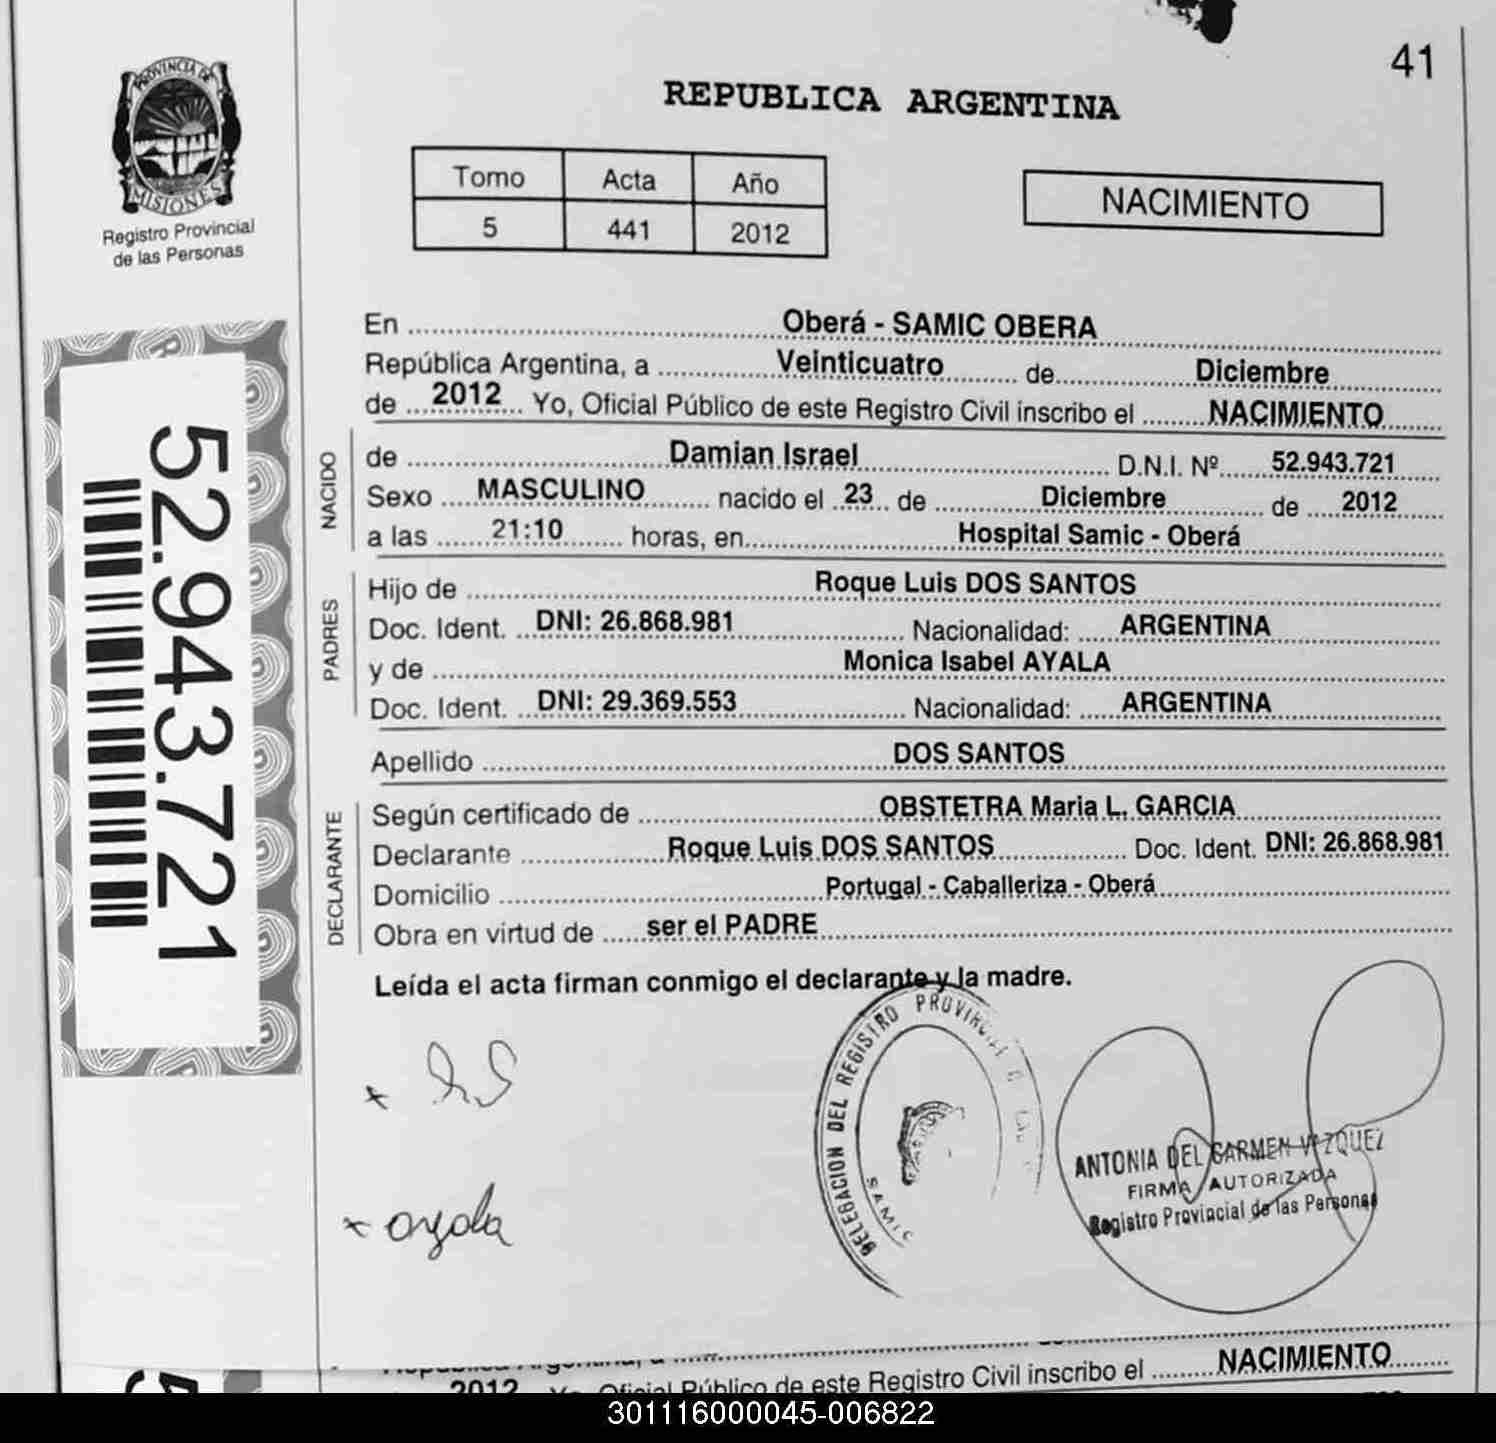 41
PROVINCIA DE
MISIONES
Registro Provincial
de las Personas
REPUBLICA ARGENTINA
Tomo Acta Año
5 441 2012
NACIMIENTO
52.943.721
En Oberá - SAMIC OBERA
República Argentina, a Veinticuatro de Diciembre
de 2012 Yo, Oficial Público de este Registro Civil inscribo el NACIMIENTO
NACIDO
de Damian Israel D.N.I. Nº 52.943.721
Sexo MASCULINO nacido el 23 de Diciembre de 2012
a las 21:10 horas, en Hospital Samic - Oberá
PADRES
Hijo de Roque Luis DOS SANTOS
Doc. Ident. DNI: 26.868.981 Nacionalidad: ARGENTINA
y de Monica Isabel AYALA
Doc. Ident. DNI: 29.369.553 Nacionalidad: ARGENTINA
Apellido DOS SANTOS
DECLARANTE
Según certificado de OBSTETRA Maria L. GARCIA
Declarante Roque Luis DOS SANTOS Doc. Ident. DNI: 26.868.981
Domicilio Portugal - Caballeriza - Oberá
Obra en virtud de ser el PADRE
Leída el acta firman conmigo el declarante y la madre.
DELEGACION DEL REGISTRO PROVINCIAL
SAMIC
x
x ayala
ANTONIA DEL CARMEN VAZQUEZ
FIRMA AUTORIZADA
Registro Provincial de las Personas
República Argentina, a
2012 Yo, Oficial Público de este Registro Civil inscribo el NACIMIENTO
301116000045-006822